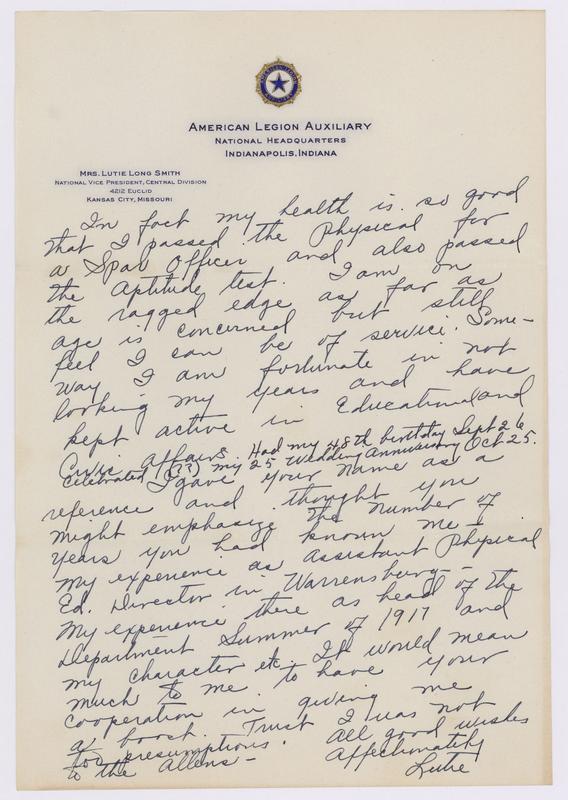 AMERICAN LEGION AUXILIARY
NATIONAL HEADQUARTERS
INDIANAPOLIS, INDIANA
MRS. LUTIE LONG SMITH
NATIONAL VICE PRESIDENT, CENTRAL DIVISION
4212 EUCLID
KANSAS CITY, MISSOURI
In fact my health is so good
that I passed the Physical for
a Spar Officer and also passed
the aptitude test. I am on
the ragged edge as far as
age is concerned but still
feel I can be of service. Some-
way I am fortunate in not
looking my years and have
kept active in Educational and
Civic affairs. Had my 48th birthday Sept 26
Celebrated (??) my 25 Wedding Anniversary Oct 25.
I gave your name as a
reference and thought you
might emphasize the number of
years you had known me -
my experience as Assistant Physical
Ed. Director in Warrensburg -
My experience there as head of the
Department Summer of 1917 and
my character etc. It would mean
much to me to have your
cooperation in giving me
a boost. Trust I was not
too presumptions. All good wishes
to the Allens - Affectionately
Lutie